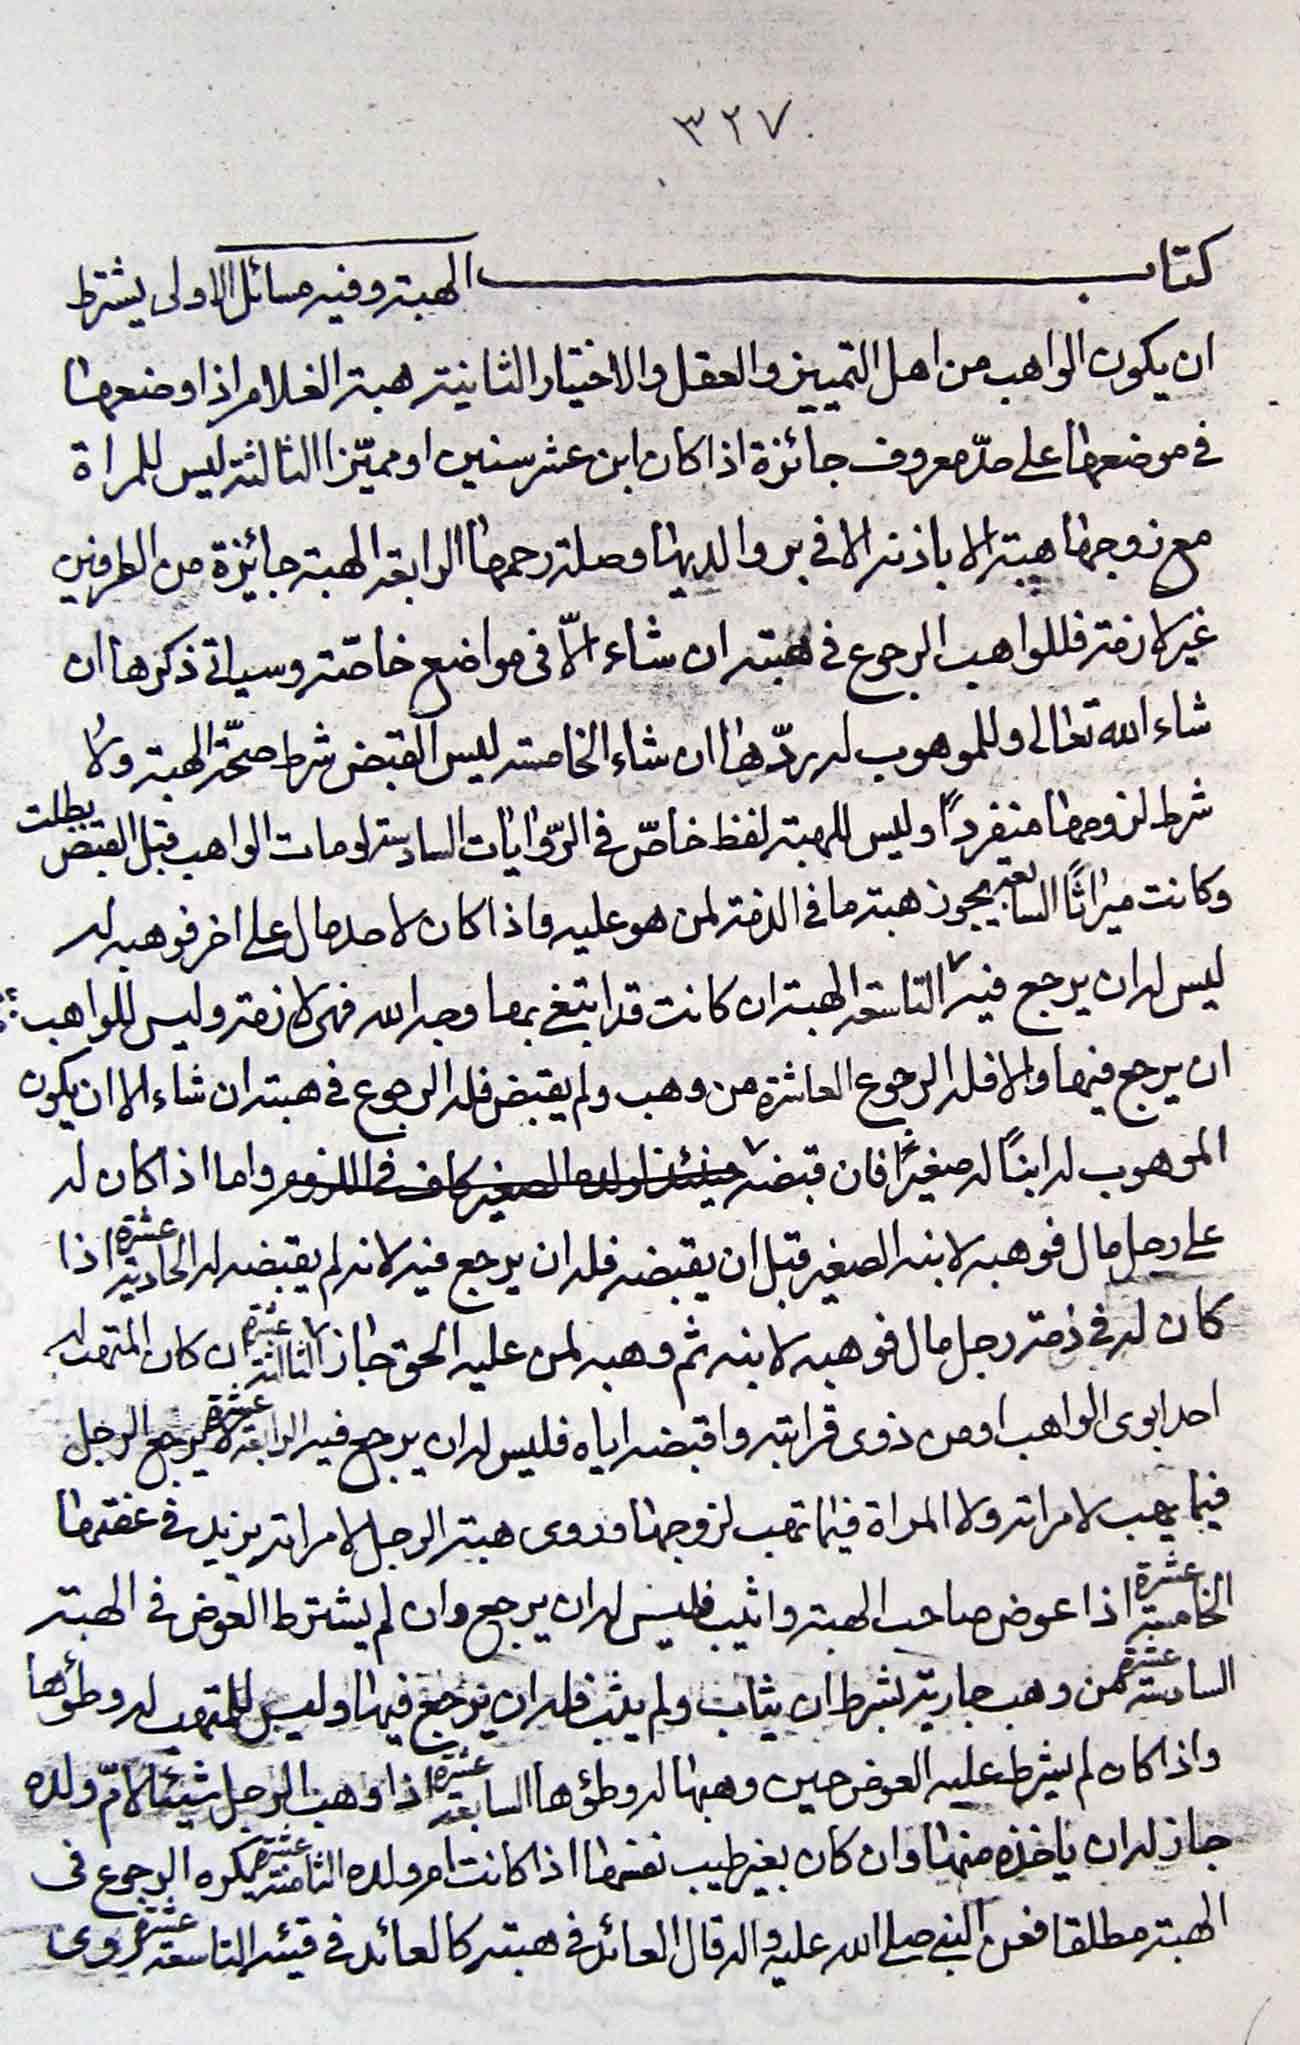 ٣٢٧
كتاب الهبة وفيه مسائل الاولى يشترط
ان يكون الواهب من اهل التمييز والعقل والاختيار الثانية هبة الغلام اذا وضعها
في موضعها على حدّ معروف جائزة اذا كان ابن عشر سنين او مميّزا الثالثة ليس للمراة
مع زوجها هبة الا باذنه الا في بر والديها وصلة رحمها الرابعة الهبة جايزة من الطرفين
غير لازمة فللواهب الرجوع في هبته ان شاء الّا في مواضع خاصّة وسياتي ذكرها ان
شاء الله تعالى وللموهوب له ردّها ان شاء الخامسة ليس القبض شرط صحّة الهبة ولا
شرط لزومها منفردًا وليس للهبة لفظ خاصّ في الرّوايات السادسة لو مات الواهب قبل القبض بطلت
وكانت ميراثًا السابعة يجوز هبة ما في الذمة لمن هو عليه واذا كان لاحد مال على اخر فوهبه له
ليس له ان يرجع فيه التاسعة الهبة ان كانت قد ابتغي بها وجه الله فهي لازمة وليس للواهب
ان يرجع فيها والا فله الرجوع العاشرة من وهب ولم يقبض فله الرجوع في هبته ان شاء الا ان يكون
الموهوب له ابنًا له صغيرًا فان قبضه حينئذ لولده الصغير كاف في اللزوم واما اذا كان له
على رجل مال فوهبه لابنه الصغير قبل ان يقبضه فله ان يرجع فيه لانه لم يقبضه له الحادية عشرة اذا
كان له في ذمة رجل مال فوهبه لابنه ثم وهبه لمن عليه الحق جاز الثالثة عشرة ان كان المتهب له
احد ابوى الواهب او من ذوى قرابته واقبضه اياه فليس له ان يرجع فيه الرابعة عشرة لا يرجع الرجل
فيما يهب لامراته ولا المراة فيما تهب لزوجها وروى هبة الرجل لامراته يزيد في عفتها
الخامسة عشرة اذا عوض صاحب الهبة واثيب فليس له ان يرجع وان لم يشترط العوض في الهبة
السادسة عشرة من وهب جارية بشرط ان يثاب ولم يثب فله ان يرجع فيها وليس للمتهب له وطؤها
واذا كان لم يشرط عليه العوض حين وهبها له وطؤها السابعة عشرة اذا وهب الرجل شيئا لامّ ولده
جاز له ان ياخذه منها وان كان بغير طيب نفسها اذا كانت ام ولده الثامنة عشرة يكره الرجوع في
الهبة مطلقا فعن النبي صلى الله عليه واله قال العائد في هبته كالعائد في قيئه التاسعة عشرة روى